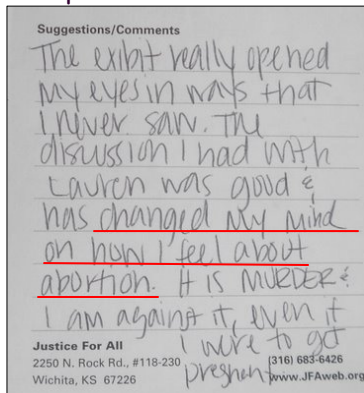 Suggestions/Comments
The exibit really opened
my eyes in ways that
I never saw. The
discussion I had with
Lauren was good &
has changed my mind
on how I feel about
abortion. It is MURDER &
I am against it, even if
I were to get
pregnent
Justice For All
2250 N. Rock Rd., #118-230
(316) 683-6426
Wichita, KS 67226
www.JFAweb.org